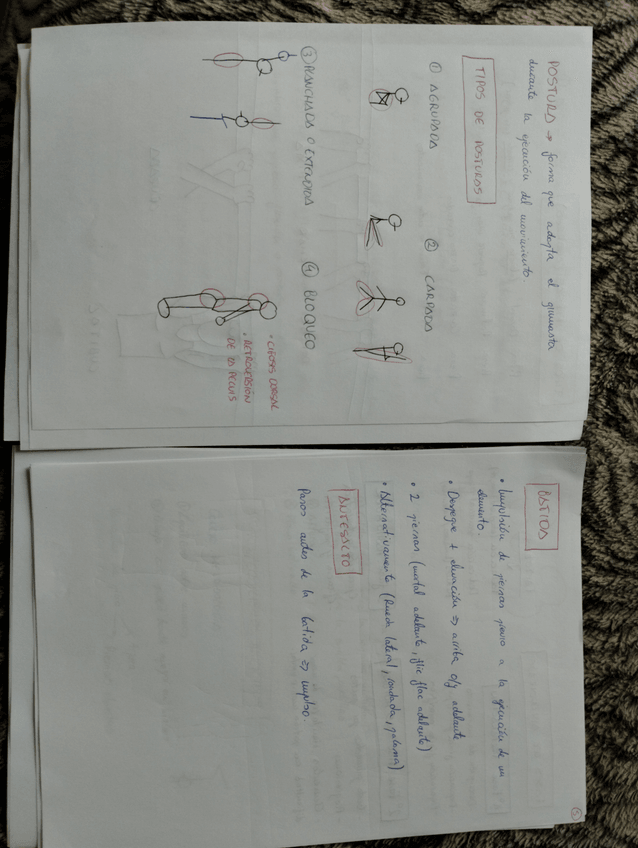 POSTURA → forma que adopta el gimnasta
durante la ejecución del movimiento.
TIPOS DE POSTURAS
① AGRUPADA
② CARPADA
③ PLANCHADA O EXTENDIDA
④ BLOQUEO
• CIFOSIS DORSAL
• RETROVERSIÓN
DE LA PELVIS
5
BATIDA
• Impulsión de piernas previo a la ejecución de un
elemento.
• Despegue + elevación ⇒ arriba o/y adelante
• 2 piernas (mortal adelante, flic flac adelante)
• Alternativamente (Rueda lateral, rondada, paloma)
ANTESALTO
Pasos antes de la batida ⇒ impulso.